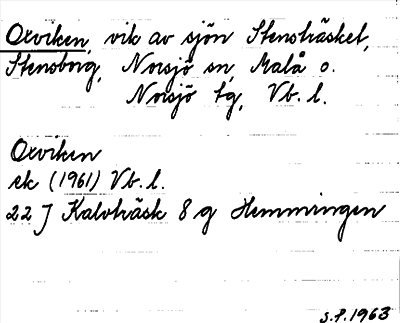 Oxviken, vik av sjön Stensträsket,
Stensborg, Norsjö sn, Malå o.
Norsjö tg, Vb. l.
Oxviken
ek (1961) Vb. l.
22 J Kalvträsk 8 g Hemmingen
S.P. 1963